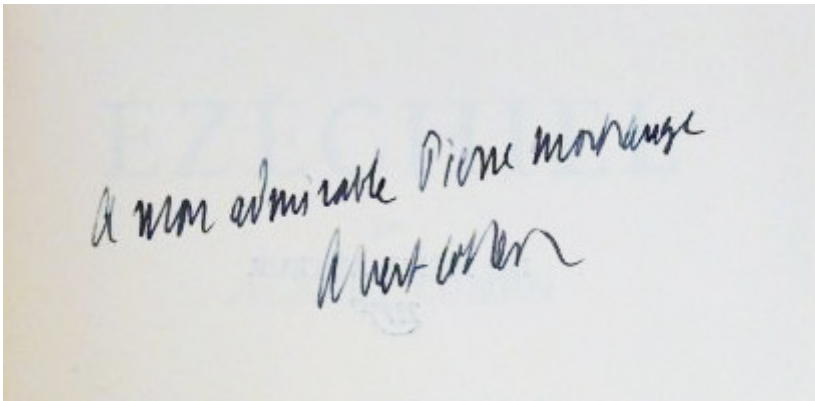 EZÉCHIEL
A mon admirable Pierre Morhange
Albert Cohen